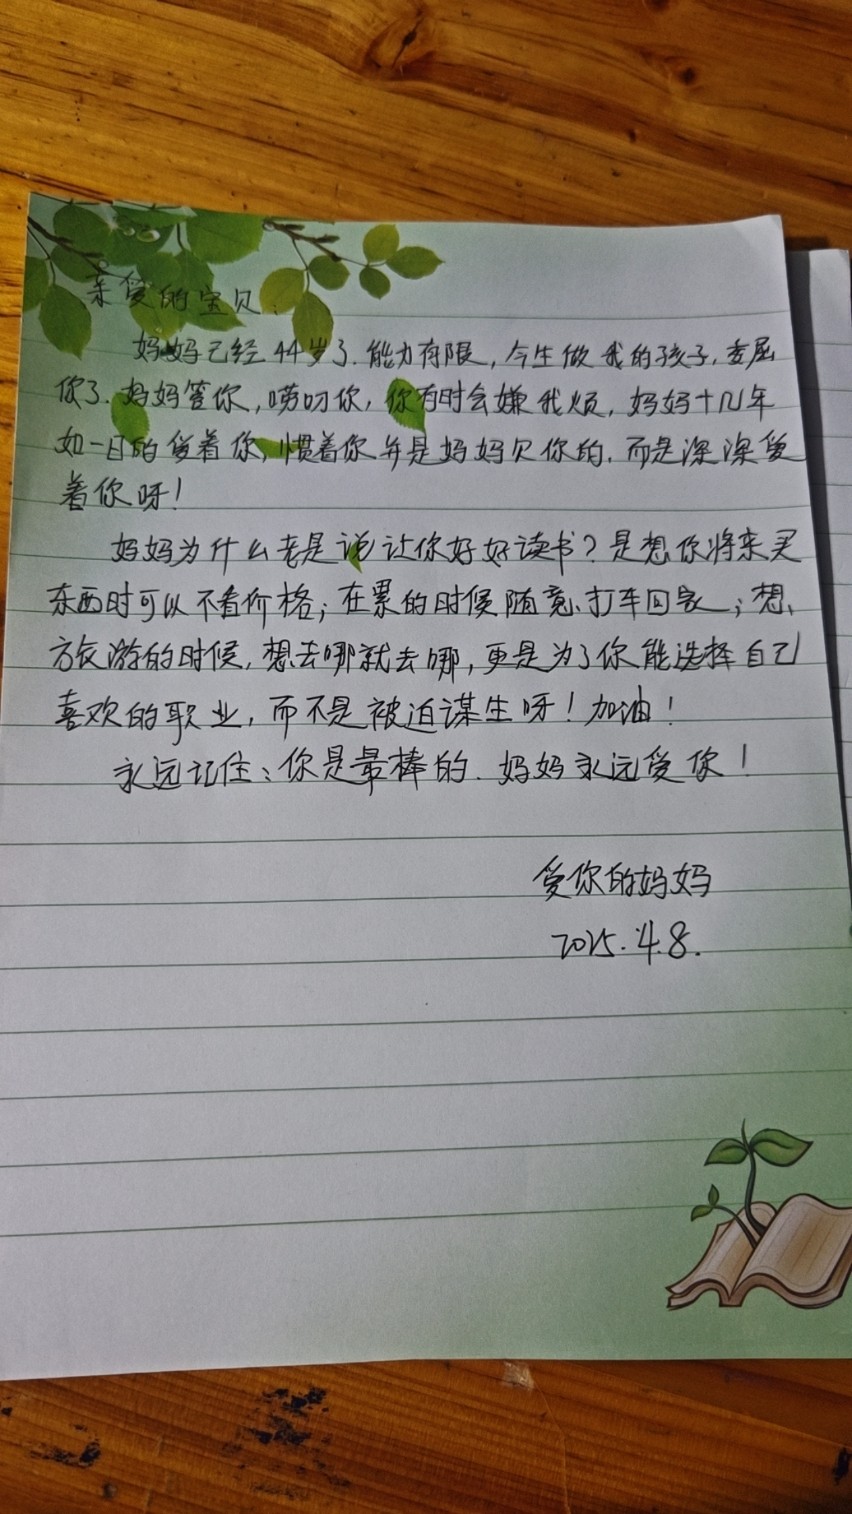 亲爱的宝贝：
妈妈已经44岁了.能力有限，今生做我的孩子，委屈
你了.妈妈管你，唠叨你，你有时会嫌我烦，妈妈十几年
如一日的爱着你，惯着你并是妈妈欠你的，而是深深爱
着你呀！
妈妈为什么老是说让你好好读书？是想你将来买
东西时可以不看价格；在累的时候随意打车回家；想
旅游的时候，想去哪就去哪，更是为了你能选择自己
喜欢的职业，而不是被迫谋生呀！加油！
永远记住：你是最棒的.妈妈永远爱你！
爱你的妈妈
2025.4.8.